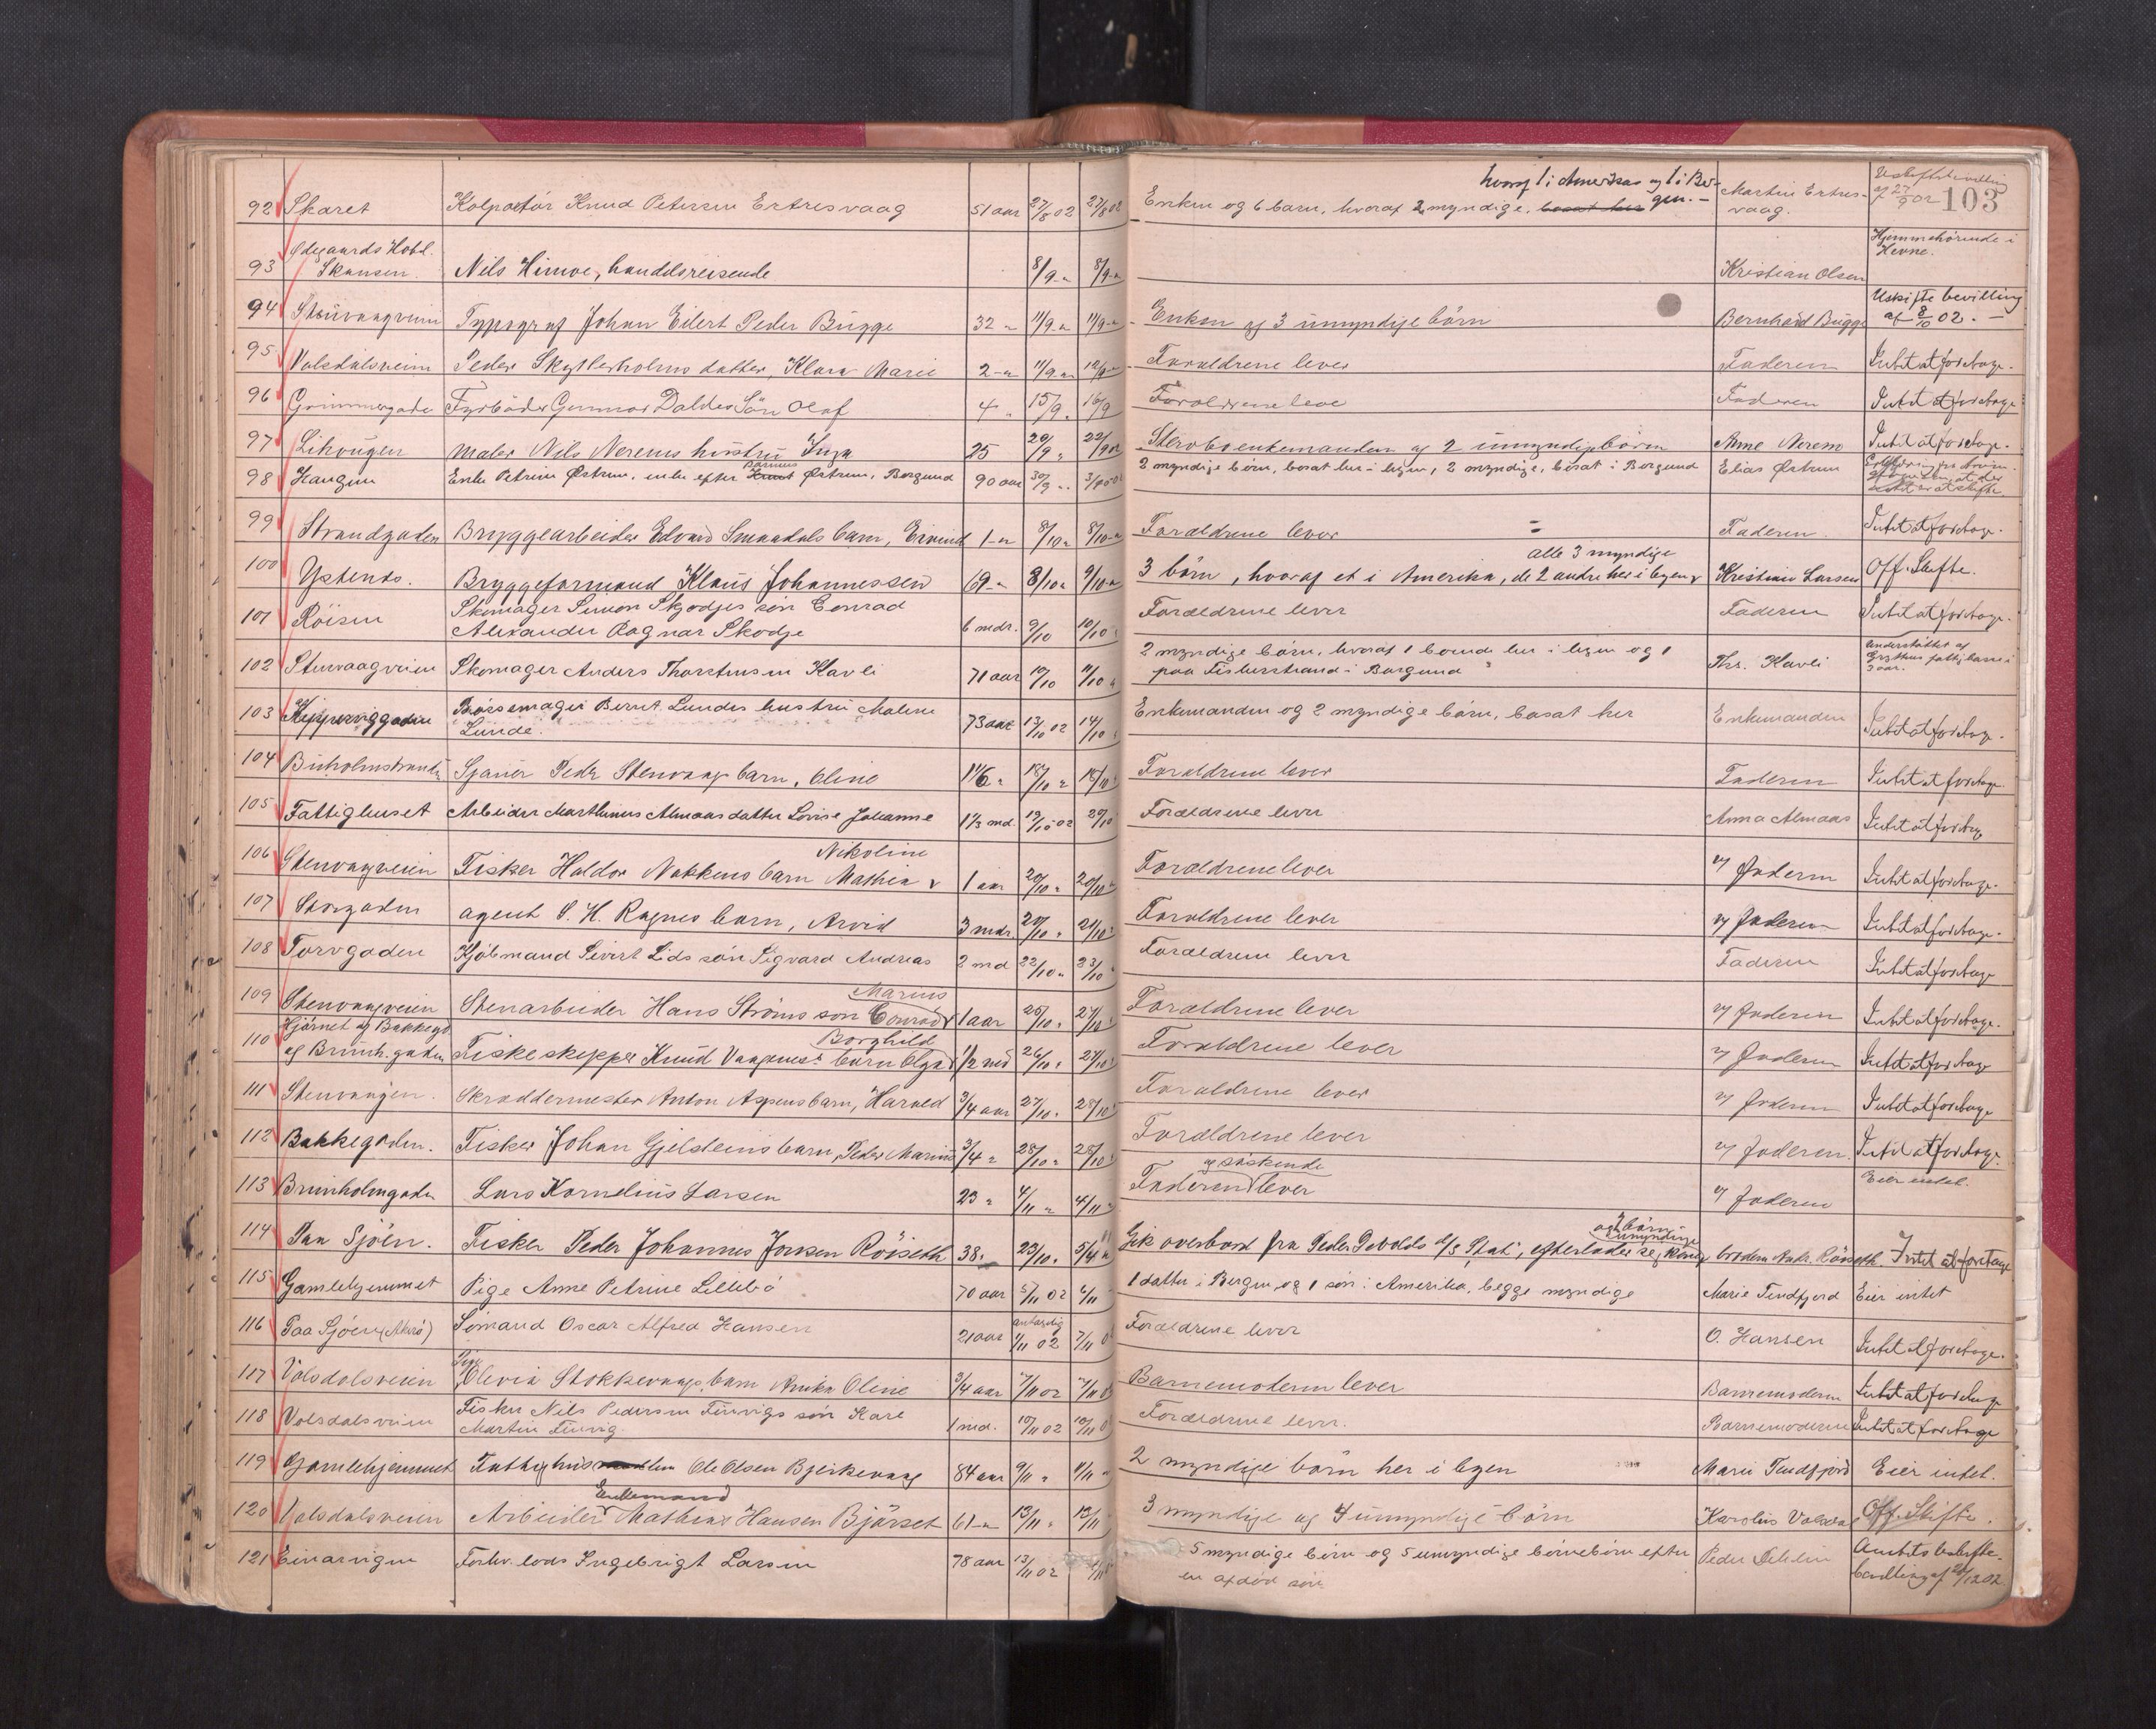 103
92 Skaret Kolportör Knud Petersen Ertresvaag 51 aar 27/8 02 27/8 02 Enken og 6 barn, hvoraf 2 myndige, bosat her hvoraf 1 i Amerika og 1 i Bergen. - Martin Ertresvaag. Uskiftebevilling af 27/9 02
93 Ødegaards Hotel. Skansen. Nils Himoe, handelsreisende 8/9 " 8/9 " Kristian Olsen Hjemmehörende i Hevne.
94 Stenvaagveien Typograf Johan Eilert Peder Bugge 32 " 11/9 " 11/9 " Enken og 3 umyndige börn Bernhard Bugge Uskiftebevilling af 8/10 02. -
95 Volsdalsveien Peder Skytterholms datter, Klara Marie 2 " 11/9 " 12/9 " Forældrene lever Faderen Intet at foretage.
96 Grimmergade Fyrböder Gunnar Daldes Sön Olaf 4 " 15/9 " 16/9 Forældrene leve Faderen Intet at foretage.
97 Lihaugen Maler Nils Nerems hustru Inga 25 20/9 " 22/9 02 Sterboenkemanden og 2 umyndige börn Arne Nerem Intet at foretage.
98 Haugen Enke Petrine Østrem, enke efter Knut Rasmus Østrem, Borgund 90 aar 30/9 " 3/10 02 2 myndige börn, bosat her i byen, 2 myndige, bosat i Borgund Elias Østrem
99 Strandgaden Bryggearbeider Edvard Smaadals barn, Eivind 1 " 8/10 " 8/10 " Forældrene lever Faderen. Intet at foretage.
100 Ystenes. Bryggeformand Klaus Johannessen 69 " 8/10 " 9/10 " 3 börn, hvoraf et i Amerika, de 2 andre her i byen alle 3 myndige Kristian Larsen Off. Skifte.
101 Röisen Skomager Simon Skodjes sön Conrad Alexander Ragnar Skodje 6 mdr. 9/10 10/10 " Forældrene lever Faderen Intet at foretage.
102 Stenvaagveien Skomager Anders Thorstensen Kavli 71 aar 10/10 11/10 " 2 myndige börn, hvoraf 1 boende her i byen og 1 paa Fiskerstrand i Borgund Ths. Kavli Understöttet af fattigkasse i 3 aar.
103 Kipperviggaden Börsemager Bernt Lundes hustru Malene Lunde. 73 aar 13/10 02 14/10 " Enkemanden og 2 myndige börn, bosat her Enkemanden Intet at foretage.
104 Buholmstranden Sjauer Peder Stenvaags barn, Oline 18/10 " 18/10 " Forældrene lever Faderen Intet at foretage.
105 Fattighuset Arbeider Marthinus Almaas datter Lovise Johanne 1 1/3 md 19/10 02 20/10 Forældrene lever Anna Almaas Intet at foretage
106 Stenvaagveien Fisker Haldor Nakkens barn Mathea Nikoline 1 aar 20/10 " 20/10 " Forældrene lever v/ Faderen Intet at foretage.
107 Storgaden agent S. H. Rognes barn, Arvid 3 mdr. 20/10 " 21/10 " Forældrene lever v/ Faderen Intet at foretage.
108 Torvgaden Kjöbmand Sivert Lids sön Sigvard Andreas 2 md 22/10 " 23/10 " Forældrene lever Faderen Intet at foretage
109 Stenvaagveien Stenarbeider Hans Ströms sön Conrad Marius 1 aar 25/10 " 27/10 " Forældrene lever v/ Faderen Intet at foretage.
110 Hjörnet af Bakkegd og Brunh. gaden Fiskeskipper Knud Vaagenes' barn Olga Borghild 1/2 md 26/10 " 27/10 " Forældrene lever v/ Faderen Intet at foretage
111 Stenvaagen. Skræddermester Anton Aspens barn, Harald 3/4 aar 27/10 " 28/10 " Forældrene lever v/ Faderen Intet at foretage
112 Bakkegaden. Fisker Johan Gjelsteins barn, Peder Marius 3/4 " 28/10 " 28/10 " Forældrene lever v/ Faderen. Intet at foretage.
113 Brunholmgaden Lars Kornelius Larsen 23 " 4/11 " 4/11 " Faderen og söskende lever v/ Faderen Eier intet.
114 Paa Sjöen. Fisker Peder Johannes Jonsen Röiseth 38 " 23/10 " 5/11 " Gik overbord fra Peder Devolds d/s "Stat", efterlader sig kone og 2 börn umyndige broderen Andr. Röiseth. Intet at foretage
115 Gamlehjemmet Pige Anne Petrine Lillebö 70 aar 5/11 02 6/11 1 datter i Bergen og 1 sön i Amerika, begge myndige Marie Tindfjord Eier intet
116 Paa Sjöen (Akrö) Sömand Oscar Alfred Hansen 21 aar antagelig 1/11 02 7/11 0 Forældrene lever O. Hansen Intet at foretage.
117 Volsdalsveien Pige Olevia Stokkevaags barn Anika Oline 3/4 aar 7/11 02 7/11 0 Barnemoderen lever Barnemoderen Intet at foretage
118 Volsdalsveien Fisker Nils Pedersen Finvigs sön Karl Martin Finvig. 1 md. 10/11 02 10/11 0 Forældrene lever. Barnemoderen Intet at foretage
119 Gamlehjemmet Fattighuslem Ole Olsen Bjerkevaag 84 aar 9/11 " 11/11 " 2 myndige börn her i byen Marie Tindfjord Eier intet.
120 Volsdalsveien Arbeider Enkemand Mathias Hansen Björset 61 " 13/11 " 13/11 3 myndige og 4 umyndige börn Karolius Volsdal Off. Skifte.
121 Einarvigen Forhv. lods Ingebrigt Larsen 78 aar 13/11 02 5 myndige börn og 5 umyndige börnebörn efter en afdöd sön Peder Amtets uskiftebevilling af 20/12 02